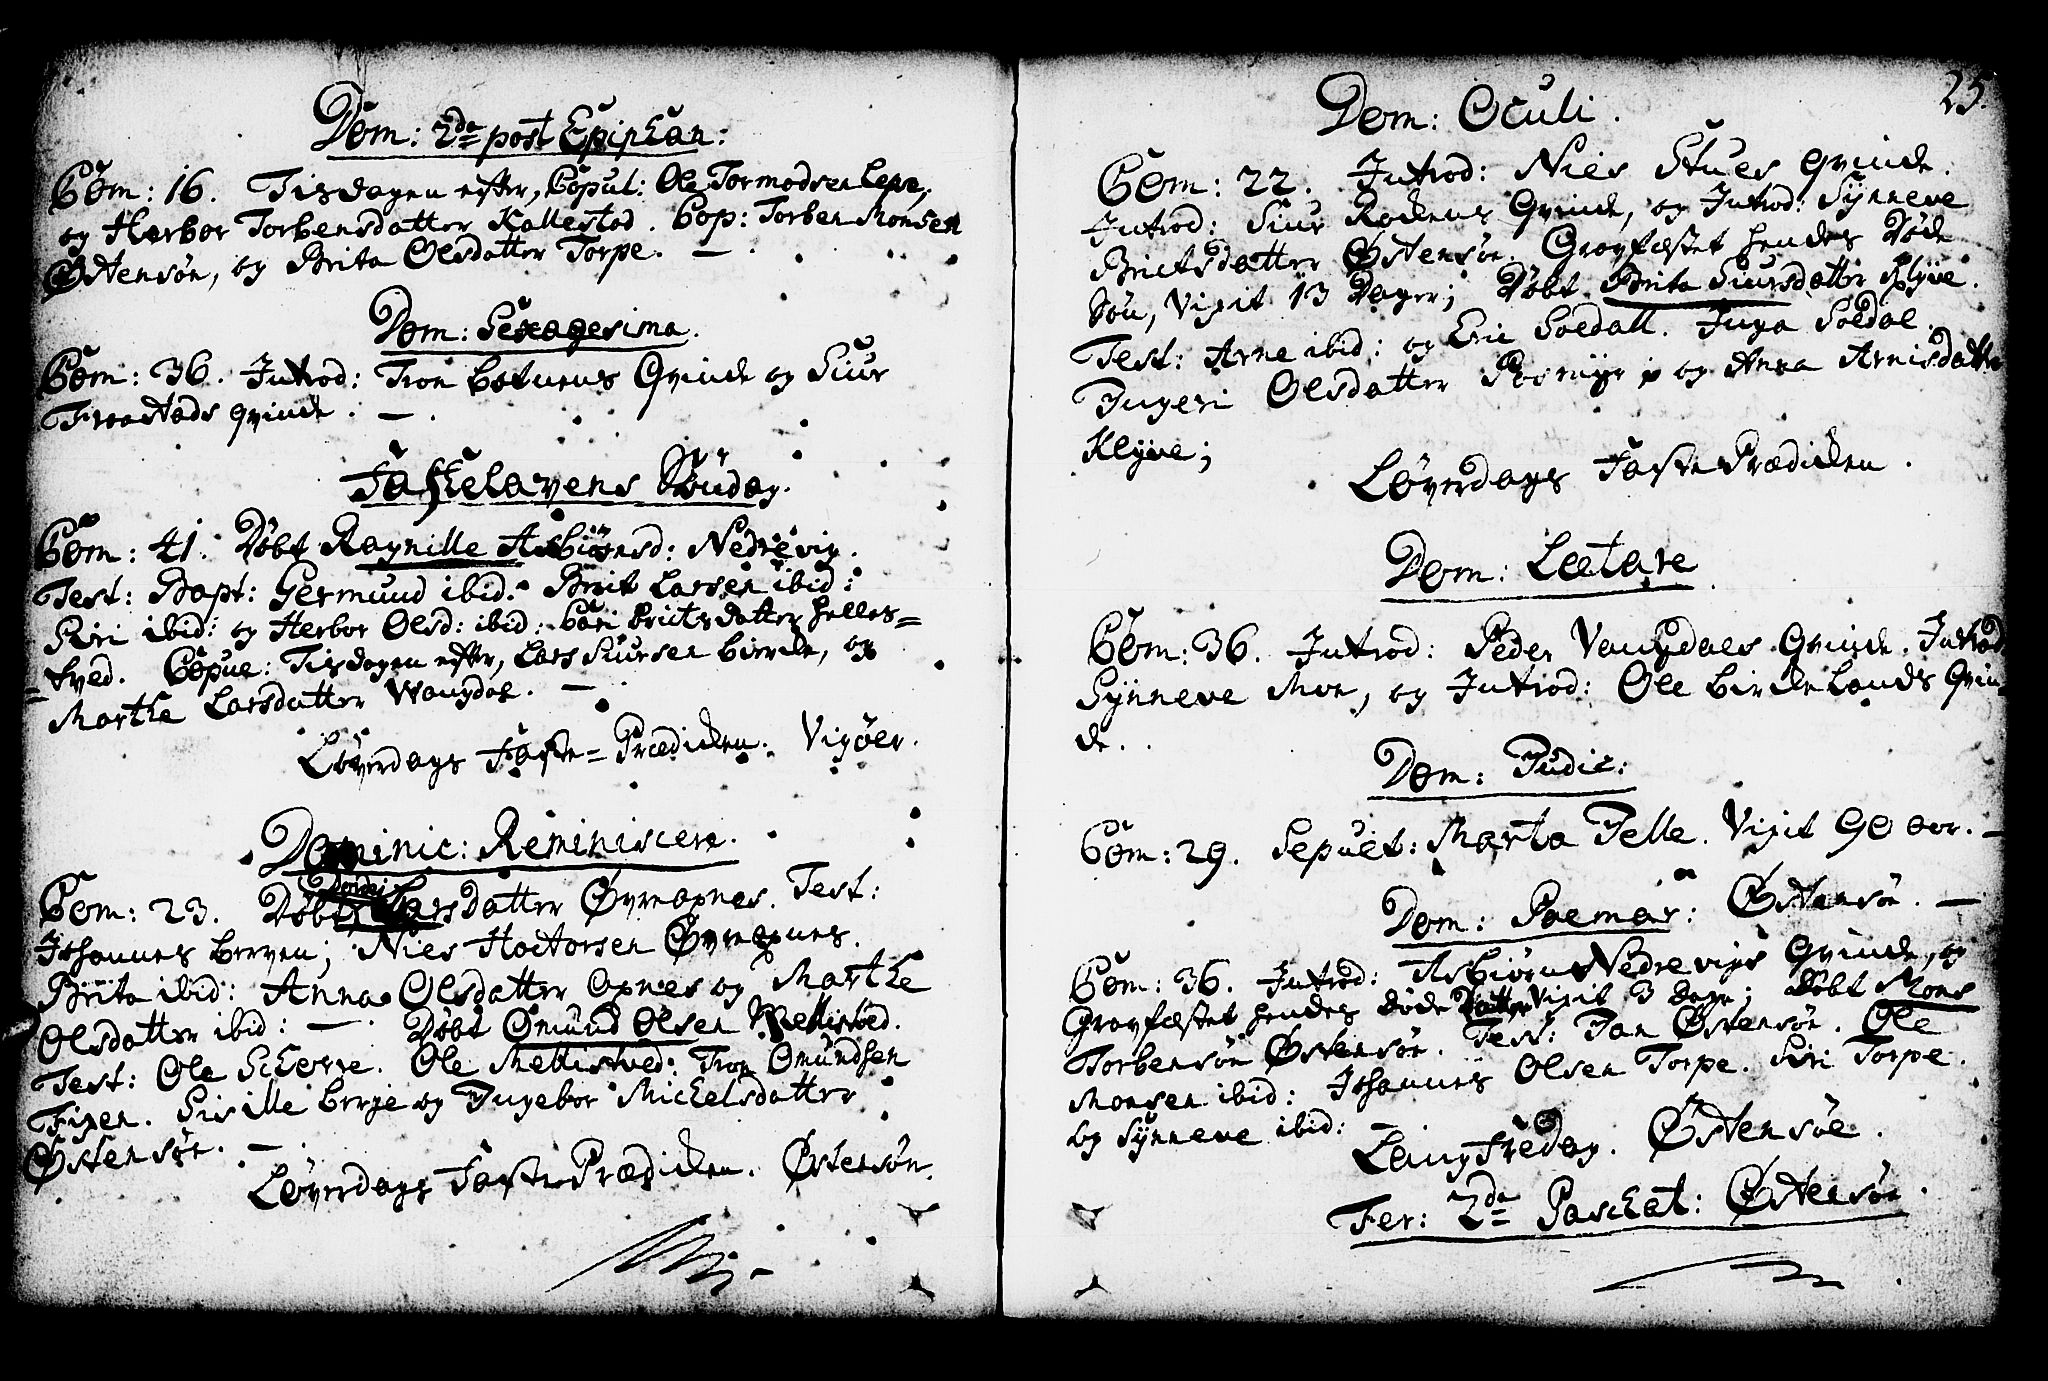 Dom: 2de post Epiphan:
Com: 16. Tisdagen efter, Copul: Ole Tormodsen Lepe,
og Herbor Torbensdatter Kallestad. Cop: Torben Monsen
Østensøe, og Brita Olsdatter Torpe. —
Dom: Sexagesima.
Com: 36. Introd: Tron Botnens Qvinde og Siur
Froestads qvinde. —
Fastelavens Søndag.
Com: 41. Døbt Ragnille Asbiørnsd: Nedrevig.
Test: Bapt: Germund ibid: Brit Larsen ibid:
Siri ibid: og Herbor Olsd: ibid: Cari Britsdatter Helles=
=tved. Copul: Tisdagen efter, Lars Siursen Birche, og
Marthe Larsdatter Wangdal. —
Løverdags Faste=Prædicken. Vigøer.
Dominic: Reminiscere.
Com: 23. Døbt Larsdatter Øvreapnes. Test:
Johannes Berven; Niels Hoctorsen Øvreapnes.
Brita ibid: Anna Olsdatter Apnes og Marthe
Olsdatter ibid: — Døbt Ømund Olsen Mellistved.
Test: Ole Scherre. Ole Mellistved: Tron Omundsen
Fixen. Sisille Berge og Ingebor Michelsdatter
Østensøe. —
Løverdags Faste Prædicken. Østensøe.
25.
Dom: Oculi.
Com: 22. Introd: Niels Stues qvinde.
Introd: Siur Rodens Qvinde, og Introd: Synneve
Brictsdatter Østensøe. Gravfæstet hendes Døde
Søn, Vixit 13 Dager; Døbt Brita Siursdatter Klyve.
Test: Arne ibid: og Eric Soldall. Inga Soldal.
Ingeri Olsdatter og Anna Arnisdatter
Klyve;
Løverdags Faste Prædicken.
Dom: Lætare
Com: 36. Introd: Peder Vangdals Qvinde. Introd
Synneve Moe, og Introd: Ole Birkelands Qvin
de.
Dom: Judic:
Com: 29. Sepult: Marta Telle. Vixit 90 aar. —
Dom: Palmar: Østensøe. —
Com: 36. Introd: Asbiørn Nedrevigs Qvinde, og
Gravfæstet hendes døde Datter Vixit 3 dage; Døbt Mons
Torbensøn Østensøe. Test: Jan Østensøe. Ole
Monsen ibid: Johannes Olsen Torpe. Siri Torpe.
og Synneve ibid:
Langfredag. Østensøe.
Fer: 2de Paschat: Østensøe